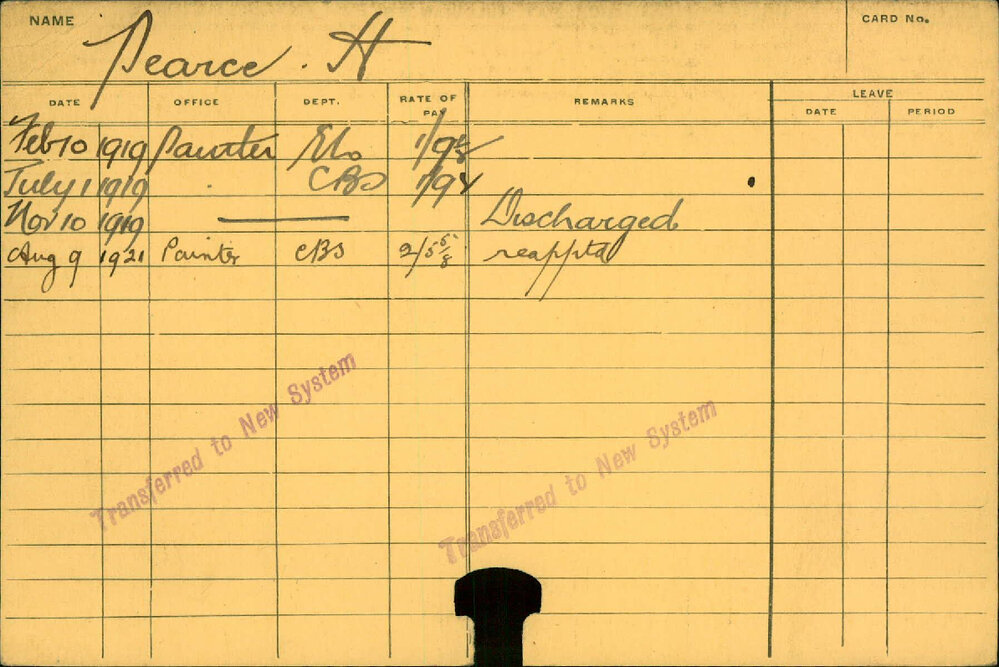 NAME Pearce. H CARD No.
DATE OFFICE DEPT. RATE OF PAY REMARKS LEAVE
DATE PERIOD
Feb 10 1919 Painter
July 1 1919 " CBS
Nov 10 1919 — Discharged
Aug 9 1921 Painter CBS 2/5 5/8 reapptd
Transferred to New System
Transferred to New System